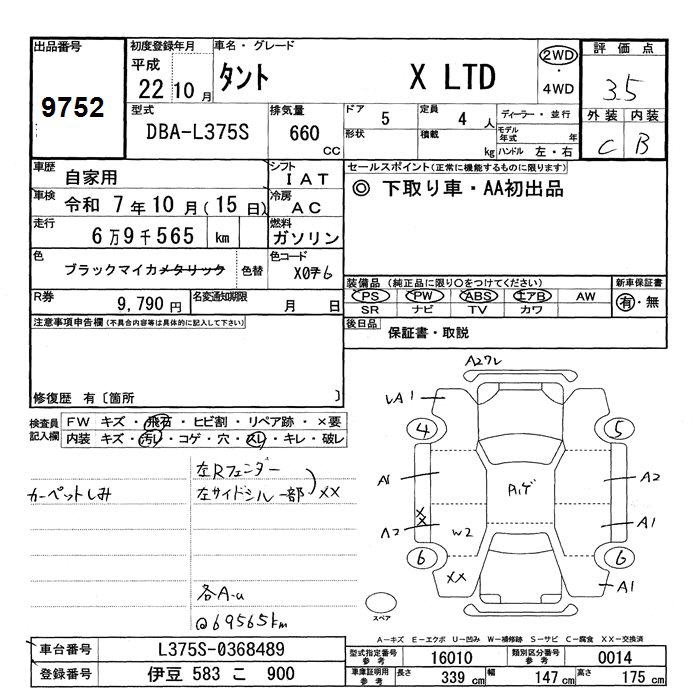 出品番号
9752
初度登録年月
平成
22 10月
車名・グレード
タント X LTD
2WD
・
4WD
評価点
3.5
外装 内装
C B
型式
DBA-L375S
排気量
660
cc
ドア
5
定員
4 人
形状
積載
kg
ディーラー・並行
モデル年式 年
ハンドル 左・右
車歴
自家用
シフト
IAT
車検
令和 7年10月(15日)
冷房
AC
走行
6万9千565 km
燃料
ガソリン
色
ブラックマイカメタリック
色替
色コード
X07 6
R券
9,790 円
名変通知期限
月 日
セールスポイント(正常に機能するものに限ります)
◎ 下取り車・AA初出品
装備品 (純正品に限り○をつけてください)
PS PW ABS エアB AW
SR ナビ TV カワ
新車保証書
有・無
後日品
保証書・取説
注意事項申告欄(不具合内容等は具体的に記入して下さい)
修復歴 有〔箇所 〕
検査員
記入欄
FW キズ・飛石・ヒビ割・リペア跡・×要
内装 キズ・汚レ・コゲ・穴・スレ・キレ・破レ
カーペットしみ
左Rフェンダー
左サイドシル一部 XX
各A-u
@69565km
A2フレ
A1
4
5
A1
A2
A2
XX
W2
A1
6
6
XX
A1
スペア
A-キズ E-エクボ U-凹み W-補修跡 S-サビ C-腐食 XX-交換済
車台番号
L375S-0368489
登録番号
伊豆 583 こ 900
型式指定番号
参考
16010
類別区分番号
参考
0014
車庫証明用
参考
長さ
339 cm
幅
147 cm
高さ
175 cm